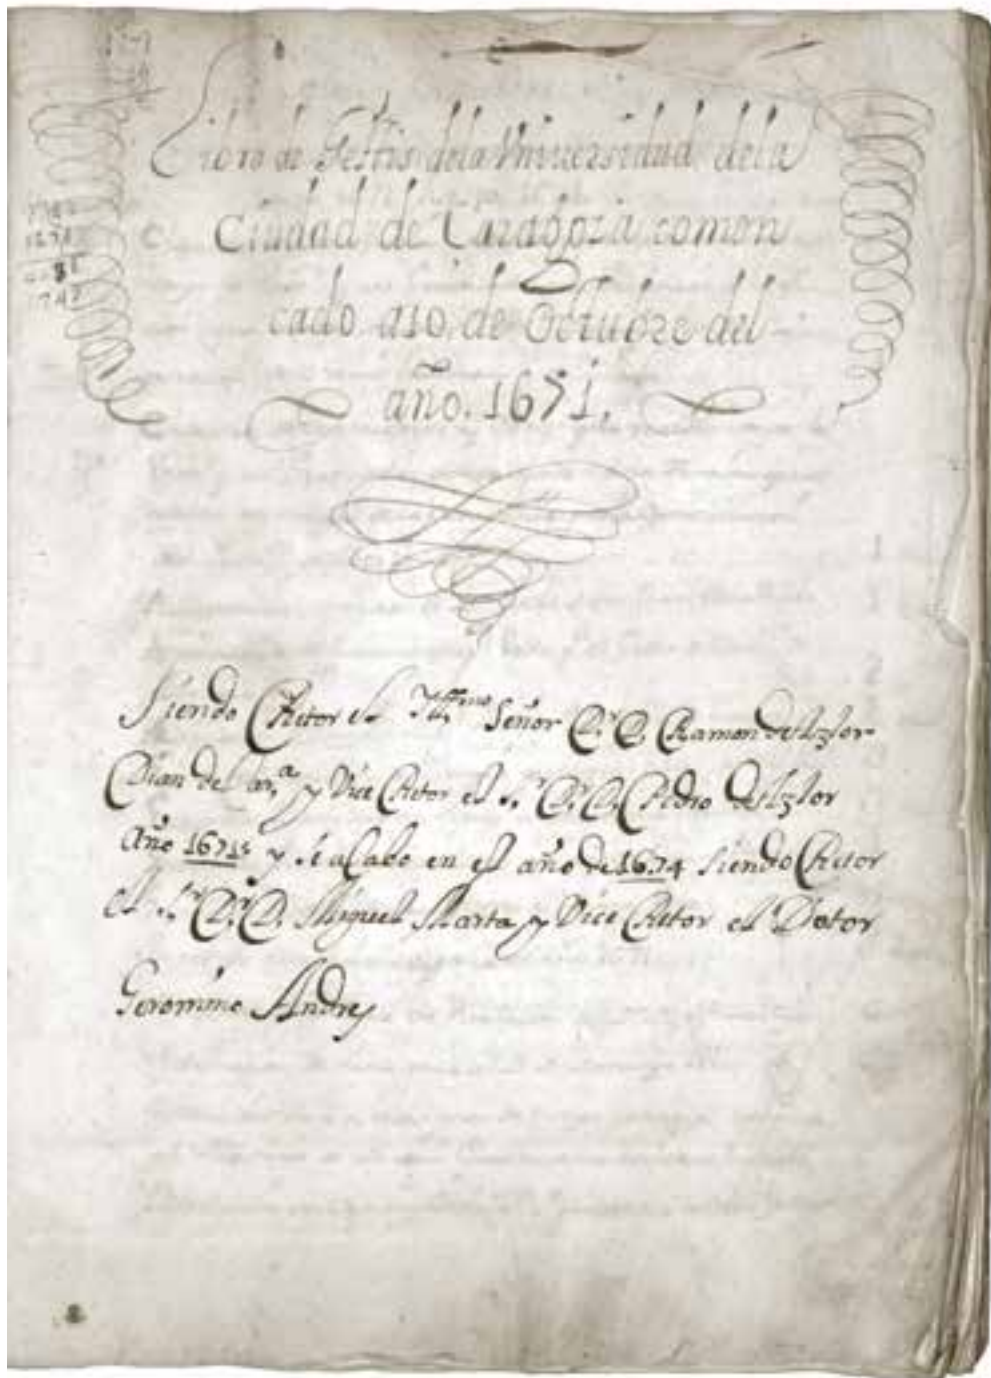 Libro de Gestis dela Vniuersidad dela
Ciudad de Çaragoza comen
cado a 10, de Octubre del
año. 1671.
Siendo Rector el Yll.mo Señor D.r D. Ramon de Azlor
Dean del y Vice Retor el S.r D.r D. Pedro de Azlor
Año 1671 y se acabo en el año de 1674 siendo Retor
el S.r D.r D. Miguel Marta y Vice Retor el Dotor
Geronimo Andres